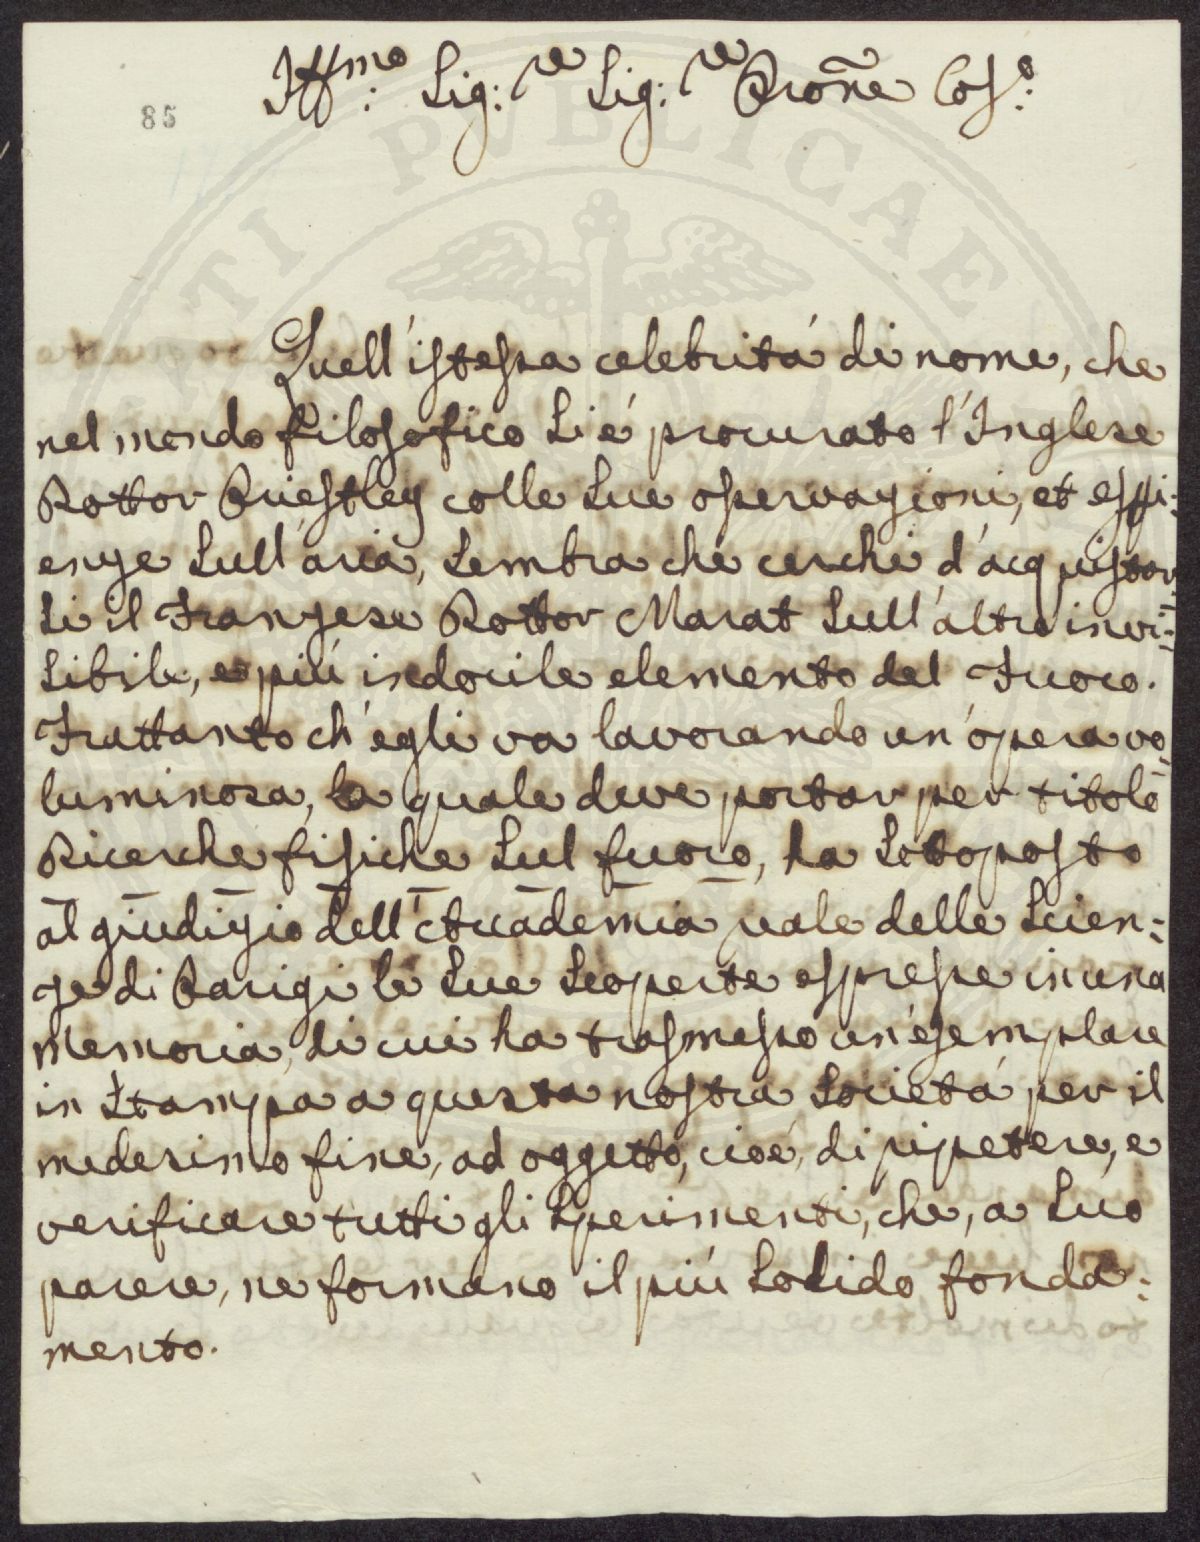 85
Ill.mo: Sig:re Sig:re Pro͞ne Col.o:
Quell'istessa celebritá di nome, che
nel mondo filosofico si é procurato l'Inglese
Dottor Priestley colle sue osservazioni, et espi:
enze sull'aria, sembra che cerchi d'acquistar:
si il Franzese Dottor Marat sull'altro invi:
sibile, e piú indocile elemento del Fuoco.
Frattanto ch'egli va lavorando un'opera vo:
luminosa, la quale deve portar per titolo
Ricerche fisiche sul fuoco, ha sottoposto
al giudizio dell'Accademia reale delle Scien:
ze di Parigi le sue scoperte espresse in una
memoria, di cui ha trasmesso un'esemplare
in stampa a questa nostra Societá per il
medesimo fine, ad oggetto, cioé, di ripetere, e
verificare tutti gli sperimenti, che, a suo
parere, ne formano il piú solido fonda:
mento.